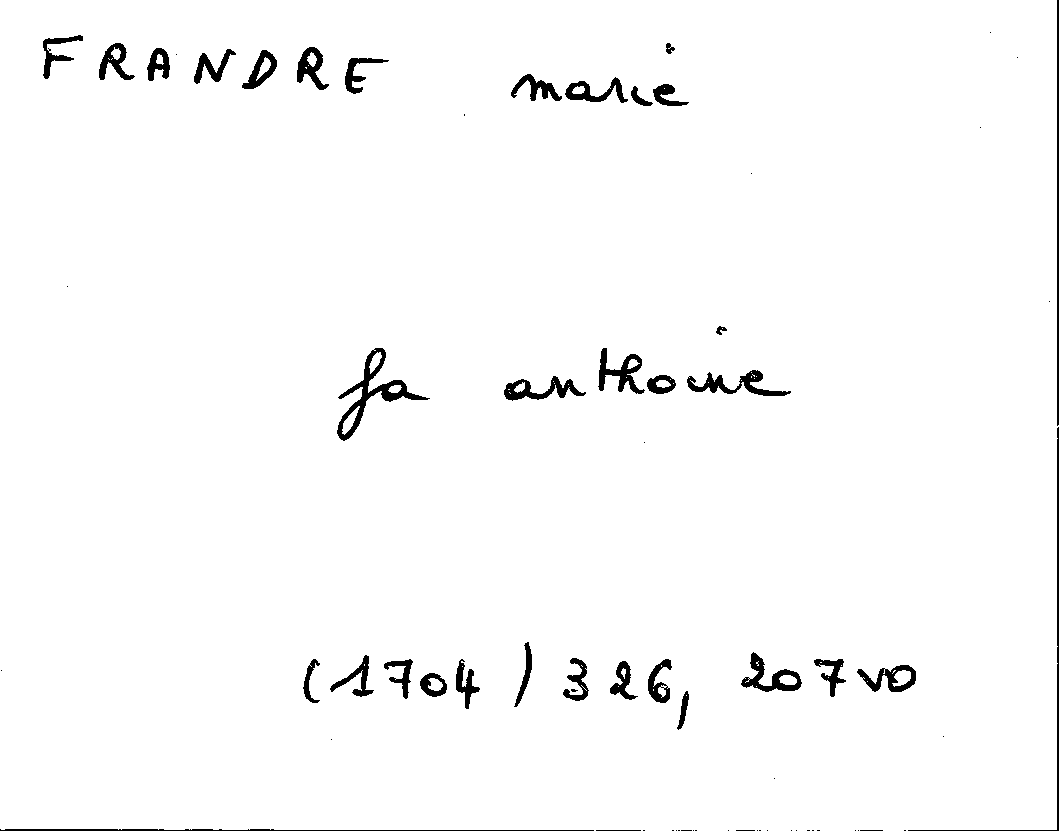 FRANDRE marie
fa anthoine
(1704) 326, 207vo